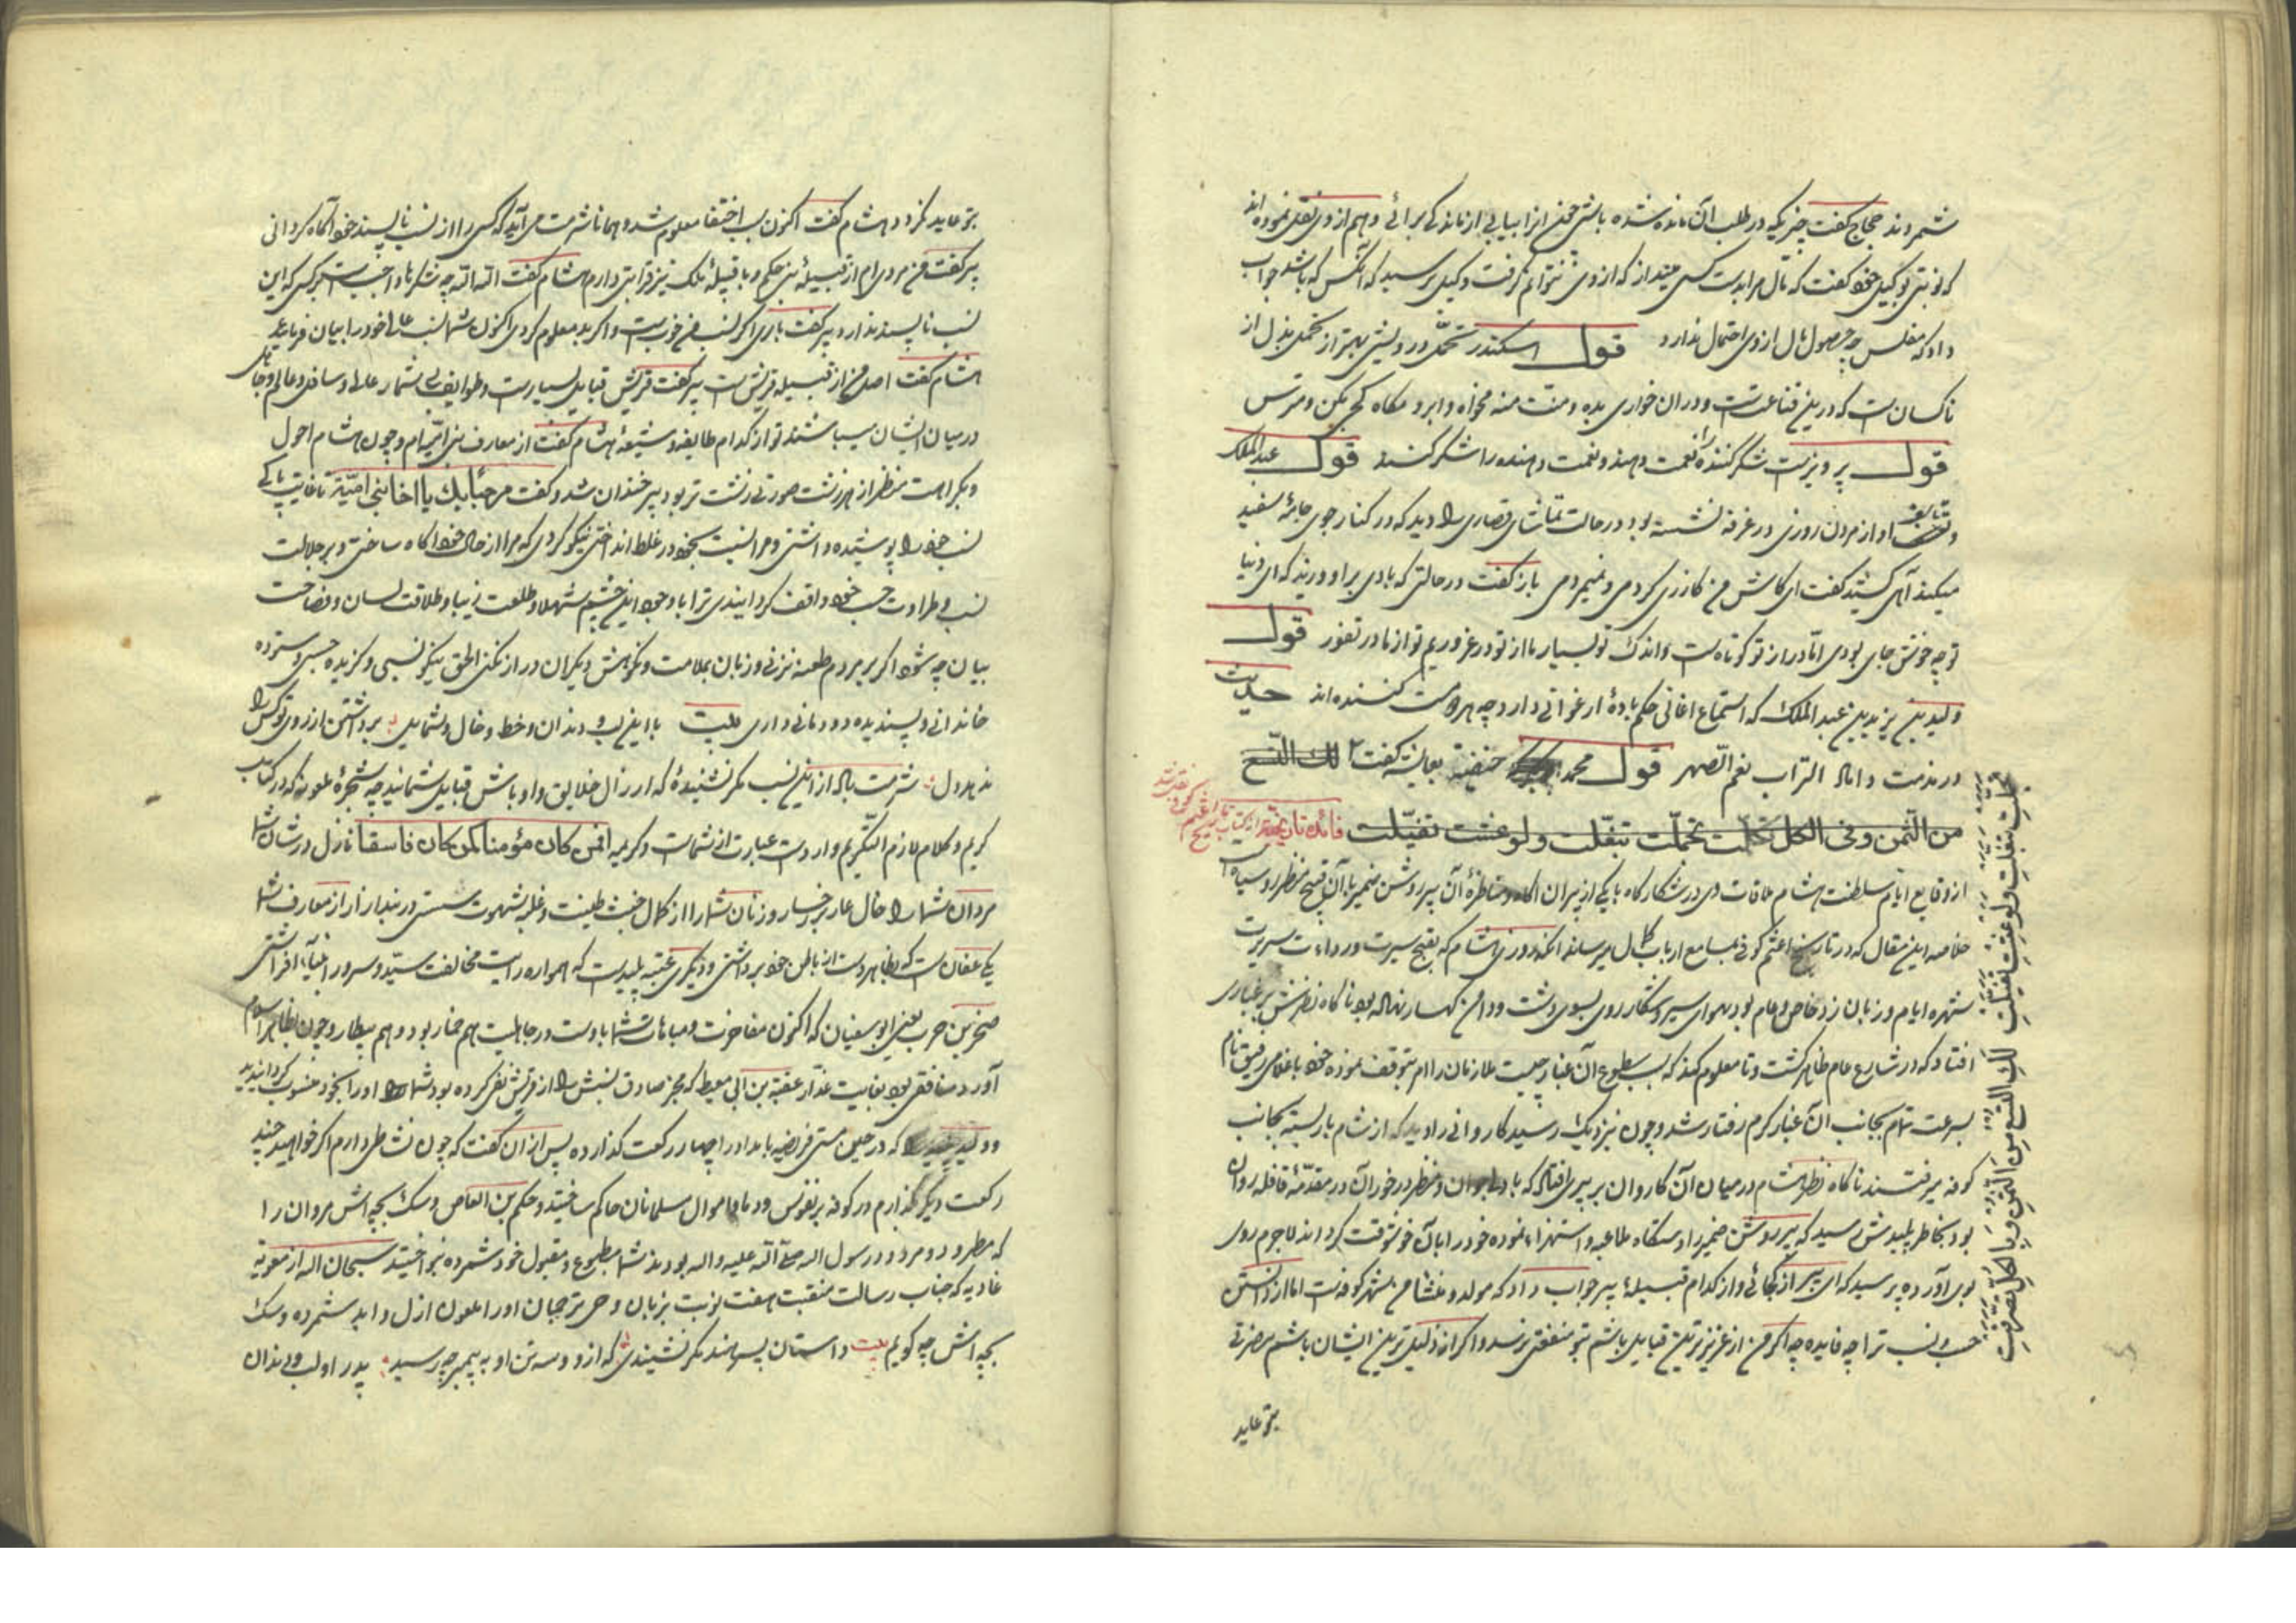 شمردند حجاج گفت چیزیکه در طلب آن مانده شده باشی وهم از وی نقل نموده‌اند
که نوبتی بوکیل خود گفت که مال مرا بدست کسی مینداز که از وی نتوانم گرفت وکیل پرسید که آنکس که باشد جواب
داد که مفلس چه حصول مال از وی احتمال ندارد قول اسکندر تحمل درویشی بهتر از تحمل بذل از
ناکسان است که درین قناعت است و در آن خواری بده و منت منه مخواه و ابرو مکاه کج مکن و مترس
قول پرویز است شکر کننده را نعمت دهید و نعمت دهنده را شکر کنید قول عبدالملک
او از مردن روزی در غرفه نشسته بود در حالت تماشای قصاری را دید که در کنار جوی جامه سفید
میکند آهی کشید گفت ای کاش من گازری کردمی و نمیردمی باز گفت در حالتی که بادی بر او وزید که ای دنیا
تو چه خوش جای بودی اما دراز تو کوتاه است و اندک تو بسیار ما از تو در غروریم تو از ما در نفور قول
ولید بن یزید بن عبد الملک که استماع اغانی حکم باده ارغوانی دارد چه هر دو مست کننده‌اند حدیث
در مذمت داماد التراب نعم الصهر قول محمد حنفیه بعایشه گفت لک التسع
من الثمن وفی الکل تجملت تبغلت ولو عشت تفیلت فائده تاریخیه از کتاب تاریخ اعثم کوفی
از وقایع ایام سلطنت هشام ملاقات وی در شکارگاه با یکی از پیران آگاه و مناظره آن پیر روشن ضمیر با آن قبیح منظر رو سیاه
خلاصه این مقال که در تاریخ اعثم کوفی بمسامع ارباب کمال میرساند آنکه روزی هشام که بقبح سیرت ورداءت سریرت
شهره ایام و زبان زد خاص و عام بود بهوای سیر و شکار روی بسوی دشت و دامن کهسار نهاده بود ناگاه نظرش بر غباری
افتاد که در شارع عام ظاهر گشت و تا معلوم کند که سبب سطوع آن غبار چیست ملازمان را امر بتوقف نموده خود با غلامی رفیق نام
بسرعت تمام بجانب آن غبار گرم رفتار شد و چون نیز نزدیک رسید کاروانی را دید که از شام بار بسته بجانب
کوفه میرفتند ناگاه نظر هشام در میان آن کاروان بر پیری افتاد که با ومنظر در خور آن در مقدمه قافله روان
بود بخاطر پلیدش رسید که پیر روشن ضمیر را دستگاه ملاعبه و استهزاء نموده خود را با آن خوشوقت گرداند لاجرم روی
بوی آورده پرسید که ای پیر از کجائی و از کدام قبیله پیر جواب داد که مولد و منشاء من شهر کوفه است اما از دانستن
حسب و نسب ترا چه فایده چه اگر من از عزیزترین قبایل باشم بتو منفعتی نرسد و اگر از ذلیل‌ترین ایشان باشم مضرتی
بتو عاید
تجملت تبغلت ولو عشت تفیلت لک التسع من الثمن وبالکل تصرفت
بتو عاید نگردد هشام گفت اکنون سبب اختفا معلوم شد وهمانا شرمت می‌آید که کسی را از نسب ناپسند خود آگاه گردانی
پیر گفت من مردی‌ام از قبیله بنی حکم و با قبیله ملک نیز قرابتی دارم هشام گفت الله الله چه شکرها واجبست بر کسی که این
نسب ناپسند ندارد پیر گفت باری اگر نسب من خوبست و اگر بد معلوم کردی اکنون شما نسب عالی خود را بیان فرمایید
هشام گفت اصل من از قبیله قریش است پیر گفت قریش قبایل بسیارست و طوایف بی‌شمار عالی و سافل و عالم و جاهل
در میان ایشان میباشند تو از کدام طایفه و شعبه هشام گفت از معارف بنی امیه‌ام و چون هشام احول
و بکراهت منظر از هر زشت صورتی زشت‌تر بود پیر خندان شد و گفت مرحبا بک یا اخا بنی امیة تا غایت باکی
نسب خود را پوشیده داشتی و مرا نسبت بخود در غلط انداختی نیکو کردی که مرا از حال خود آگاه ساختی و بر جلالت
نسب و طراوت حسب خود واقف گردانیدی ترا با وجود این چشم شهلا و طلعت زیبا و طلاقت لسان و فصاحت
بیان چه شود اگر بر مردم طعنه نزنی و زبان بملامت و نکوهش دیگران دراز نکنی الحق نیکو نسبی و گزیده حسبی و ستوده
خاندانی و پسندیده دودمانی داری بیت با این لب و دندان و خط و خال و شمایل برداشتن از روی تو کس را
ندهد دل شرمت باد از این نسب مگر نشنیده که ارزال خلایق و اوباش قبایل شمائید چه شجره ملعونه که در کتاب
کریم و کلام لازم التکریم وارد است عبارت از شماست و کریمه افمن کان مؤمنا کمن کان فاسقا نازل در شان شما
مردان شما را خال عار بر رخسار و زنان شما را از کمال خبث طینت و غلبه شهوت سستی در بند ازار از معارف شما
یکی عفان است که بظاهر دست از باطن خود برداشتی و دیگری عتبه پلید است که همواره رایت مخالفت سید و سرور انبیآء افراشتی
صخر بن حرب یعنی ابو سفیان که اکنون مفاخرت و مباهات شما باوست در جاهلیت هم خمار بود و هم بیطار و چون بظاهر اسلام
آورد منافقی بود بغایت غدار عقبة بن ابی معیط که مخبر صادق نسبش را از قریش نفی کرده بود شما او را بخود منسوب گردانیدید
و ولید که در حین مستی فریضه بامداد را چهار رکعت گذارده پس از آن گفت که چون نشاطی دارم اگر خواهید چند
رکعت دیگر بگذارم در کوفه بر نفوس و دماء و اموال مسلمانان حاکم ساختید و حکم بن العاص و سگ بچه‌اش مروان را
که مطرود و مردود رسول اله صلی الله علیه واله بودند شما مطبوع و مقبول خود شمرده بنواختید سبحان اله از معویه
غاویه که جناب رسالت منقبت هفت نوبت بزبان وحی ترجمان او را ملعون ازل و ابد شمرده و سگ
بچه‌اش چه گویم بیت داستان پسر هند مگر نشنیدی که از و و سه تن او به پیمبر چه رسید پدر او لب و دندان